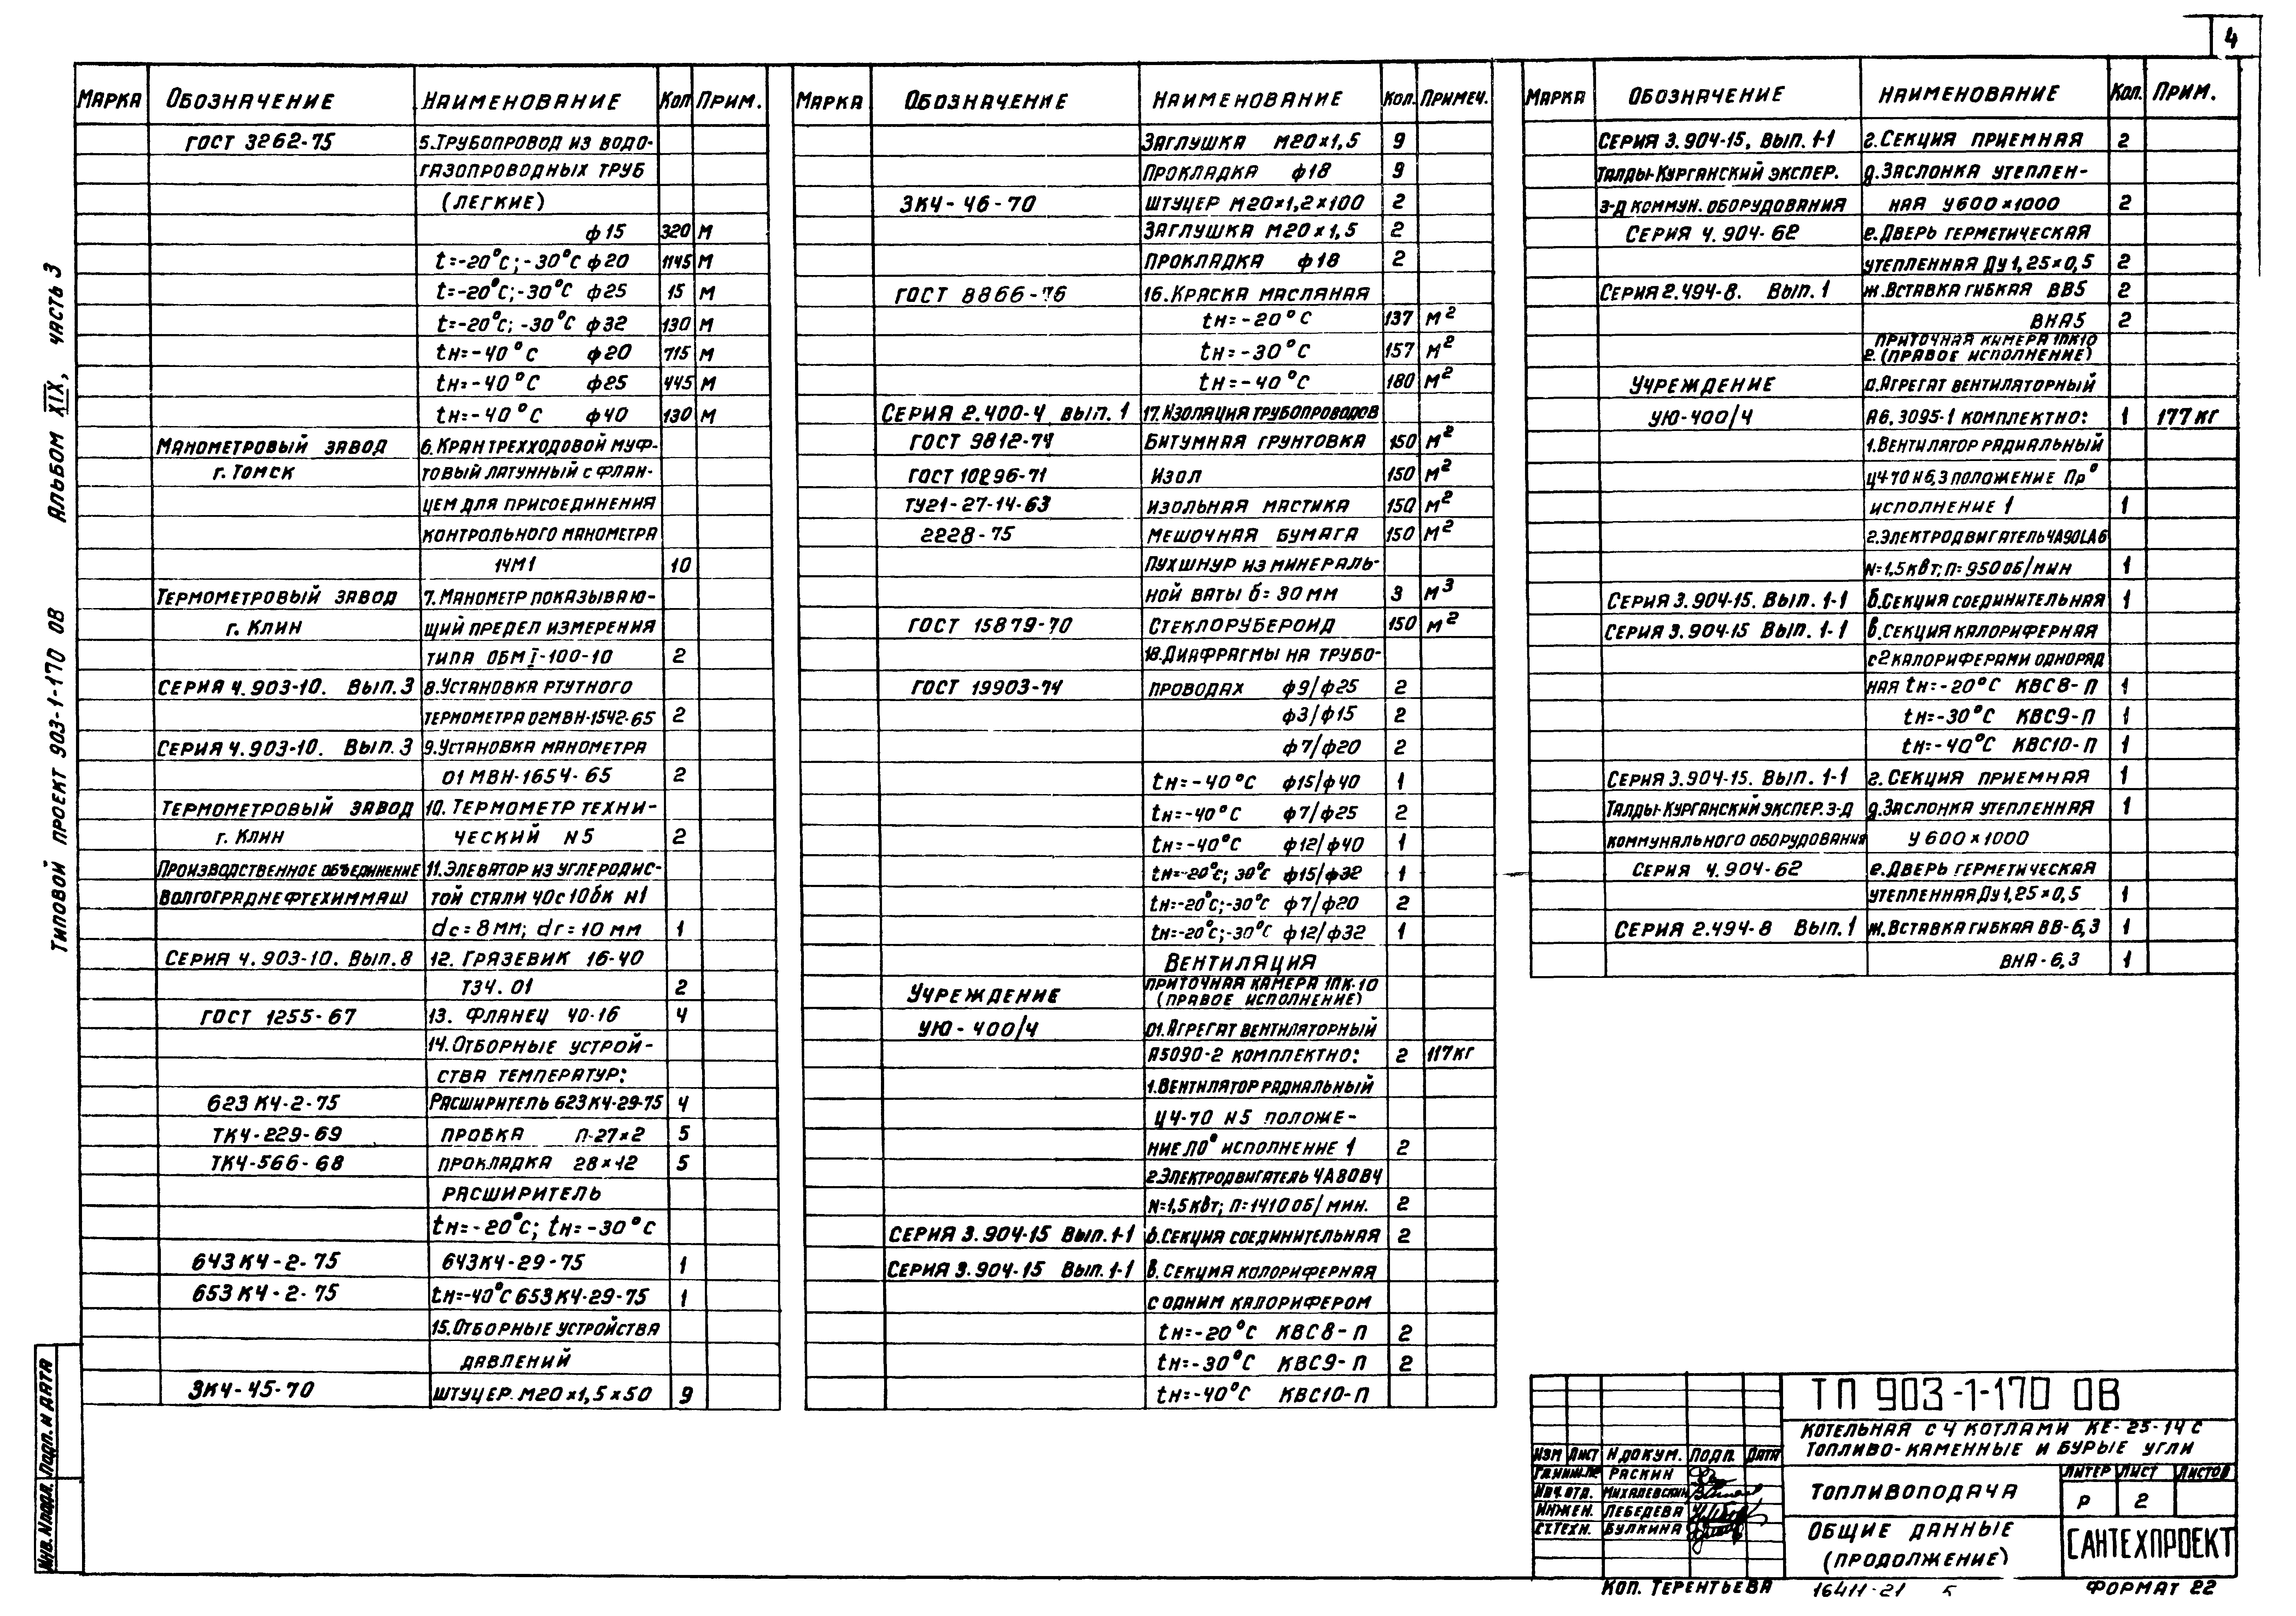 4
ТИПОВОЙ ПРОЕКТ 903-1-170 ОВ АЛЬБОМ XIX, ЧАСТЬ 3
МАРКА ОБОЗНАЧЕНИЕ НАИМЕНОВАНИЕ КОЛ ПРИМ.
ГОСТ 3262-75 5.ТРУБОПРОВОД ИЗ ВОДО-
ГАЗОПРОВОДНЫХ ТРУБ
(ЛЕГКИЕ)
ф15 320 М
t=-20°С;-30°С ф20 1145 М
t=-20°С;-30°С ф25 15 М
t=-20°С;-30°С ф32 130 М
tн=-40°С ф20 715 М
tн=-40°С ф25 445 М
tн=-40°С ф40 130 М
МАНОМЕТРОВЫЙ ЗАВОД 6.КРАН ТРЕХХОДОВОЙ МУФ-
г. ТОМСК ТОВЫЙ ЛАТУННЫЙ С ФЛАН-
ЦЕМ ДЛЯ ПРИСОЕДИНЕНИЯ
КОНТРОЛЬНОГО МАНОМЕТРА
14М1 10
ТЕРМОМЕТРОВЫЙ ЗАВОД 7.МАНОМЕТР ПОКАЗЫВАЮ-
г. КЛИН ЩИЙ ПРЕДЕЛ ИЗМЕРЕНИЯ
ТИПА ОБМ I-100-10 2
СЕРИЯ 4.903-10. ВЫП.3 8.УСТАНОВКА РТУТНОГО
ТЕРМОМЕТРА 02МВН-1542-65 2
СЕРИЯ 4.903-10. ВЫП.3 9.УСТАНОВКА МАНОМЕТРА
01 МВН-1654-65 2
ТЕРМОМЕТРОВЫЙ ЗАВОД 10.ТЕРМОМЕТР ТЕХНИ-
г. КЛИН ЧЕСКИЙ N5 2
ПРОИЗВОДСТВЕННОЕ ОБЪЕДИНЕНИЕ 11.ЭЛЕВАТОР ИЗ УГЛЕРОДИС-
ВОЛГОГРАДНЕФТЕХИММАШ ТОЙ СТАЛИ 40с10бк N1
dс=8мм; dг=10мм 1
СЕРИЯ 4.903-10. ВЫП.8 12. ГРЯЗЕВИК 16-40
ТЗ4.01 2
ГОСТ 1255-67 13. ФЛАНЕЦ 40-16 4
14.ОТБОРНЫЕ УСТРОЙ-
СТВА ТЕМПЕРАТУР:
623 К4-2-75 РАСШИРИТЕЛЬ 623К4-29-75 4
ТК4-229-69 ПРОБКА П-27×2 5
ТК4-566-68 ПРОКЛАДКА 28×12 5
РАСШИРИТЕЛЬ
tн=-20°С; tн=-30°С
643К4-2-75 643К4-29-75 1
653К4-2-75 tн=-40°С 653К4-29-75 1
15.ОТБОРНЫЕ УСТРОЙСТВА
ДАВЛЕНИЙ
ЗК4-45-70 ШТУЦЕР М20×1,5×50 9
МАРКА ОБОЗНАЧЕНИЕ НАИМЕНОВАНИЕ КОЛ. ПРИМЕЧ.
ЗАГЛУШКА М20×1,5 9
ПРОКЛАДКА ф18 9
ЗК4-46-70 ШТУЦЕР М20×1,2×100 2
ЗАГЛУШКА М20×1,5 2
ПРОКЛАДКА ф18 2
ГОСТ 8866-76 16.КРАСКА МАСЛЯНАЯ
tн=-20°С 137 М²
tн=-30°С 157 М²
tн=-40°С 180 М²
СЕРИЯ 2.400-4 ВЫП. 1 17.ИЗОЛЯЦИЯ ТРУБОПРОВОДОВ
ГОСТ 9812-74 БИТУМНАЯ ГРУНТОВКА 150 М²
ГОСТ 10296-71 ИЗОЛ 150 М²
ТУ21-27-14-63 ИЗОЛЬНАЯ МАСТИКА 150 М²
2228-75 МЕШОЧНАЯ БУМАГА 150 М²
ПУХШНУР ИЗ МИНЕРАЛЬ-
НОЙ ВАТЫ б=30мм 3 М³
ГОСТ 15879-70 СТЕКЛОРУБЕРОИД 150 М²
18.ДИАФРАГМЫ НА ТРУБО-
ГОСТ 19903-74 ПРОВОДАХ ф9/ф25 2
ф3/ф15 2
ф7/ф20 2
tн=-40°С ф15/ф40 1
tн=-40°С ф7/ф25 2
tн=-40°С ф12/ф40 1
tн=-20°С; 30°С ф15/ф32 1
tн=-20°С;-30°С ф7/ф20 2
tн=-20°С;-30°С ф12/ф32 1
ВЕНТИЛЯЦИЯ
ПРИТОЧНАЯ КАМЕРА 1ПК-10
УЧРЕЖДЕНИЕ (ПРАВОЕ ИСПОЛНЕНИЕ)
УЮ-400/4 01.АГРЕГАТ ВЕНТИЛЯТОРНЫЙ
А5090-2 КОМПЛЕКТНО: 2 117КГ
1.ВЕНТИЛЯТОР РАДИАЛЬНЫЙ
Ц4-70 N5 ПОЛОЖЕ-
НИЕ Л0° ИСПОЛНЕНИЕ 1 2
2.ЭЛЕКТРОДВИГАТЕЛЬ 4А80В4
N=1,5 КВТ; П=1410 ОБ/МИН. 2
СЕРИЯ 3.904-15 ВЫП.1-1 б.СЕКЦИЯ СОЕДИНИТЕЛЬНАЯ 2
СЕРИЯ 3.904-15 ВЫП.1-1 в.СЕКЦИЯ КАЛОРИФЕРНАЯ
С ОДНИМ КАЛОРИФЕРОМ
tн=-20°С КВС8-П 2
tн=-30°С КВС9-П 2
tн=-40°С КВС10-П
МАРКА ОБОЗНАЧЕНИЕ НАИМЕНОВАНИЕ КОЛ. ПРИМ.
СЕРИЯ 3.904-15, ВЫП. 1-1 г.СЕКЦИЯ ПРИЕМНАЯ 2
ТАЛДЫ-КУРГАНСКИЙ ЭКСПЕР. д.ЗАСЛОНКА УТЕПЛЕН-
З-Д КОММУН. ОБОРУДОВАНИЯ НАЯ У600×1000 2
СЕРИЯ 4.904-62 е.ДВЕРЬ ГЕРМЕТИЧЕСКАЯ
УТЕПЛЕННАЯ ДУ 1,25×0,5 2
СЕРИЯ 2.494-8. ВЫП.1 ж.ВСТАВКА ГИБКАЯ ВВ5 2
ВНА5 2
ПРИТОЧНАЯ КАМЕРА 1ПК10
2.(ПРАВОЕ ИСПОЛНЕНИЕ)
УЧРЕЖДЕНИЕ а.АГРЕГАТ ВЕНТИЛЯТОРНЫЙ
УЮ-400/4 А6,3095-1 КОМПЛЕКТНО: 1 177 КГ
1.ВЕНТИЛЯТОР РАДИАЛЬНЫЙ
Ц4-70 N6,3 ПОЛОЖЕНИЕ Пр°
ИСПОЛНЕНИЕ 1 1
2.ЭЛЕКТРОДВИГАТЕЛЬ 4А90LА6
N=1,5КВТ; П=950 ОБ/МИН 1
СЕРИЯ 3.904-15. ВЫП.1-1 б.СЕКЦИЯ СОЕДИНИТЕЛЬНАЯ 1
СЕРИЯ 3.904-15 ВЫП.1-1 в.СЕКЦИЯ КАЛОРИФЕРНАЯ
С 2 КАЛОРИФЕРАМИ ОДНОРЯД
НАЯ tн=-20°С КВС8-П 1
tн=-30°С КВС9-П 1
tн=-40°С КВС10-П 1
СЕРИЯ 3.904-15. ВЫП.1-1 г.СЕКЦИЯ ПРИЕМНАЯ 1
ТАЛДЫ-КУРГАНСКИЙ ЭКСПЕР. З-Д д.ЗАСЛОНКА УТЕПЛЕННАЯ 1
КОММУНАЛЬНОГО ОБОРУДОВАНИЯ У 600×1000
СЕРИЯ 4.904-62 е.ДВЕРЬ ГЕРМЕТИЧЕСКАЯ
УТЕПЛЕННАЯ Ду1,25×0,5 1
СЕРИЯ 2.494-8 ВЫП.1 ж.ВСТАВКА ГИБКАЯ ВВ-6,3 1
ВНА-6,3 1
ТП 903-1-170 ОВ
КОТЕЛЬНАЯ С 4 КОТЛАМИ КЕ-25-14С
ТОПЛИВО-КАМЕННЫЕ И БУРЫЕ УГЛИ
ИЗМ ЛИСТ N ДОКУМ. ПОДП. ДАТА
РАСКИН
НАЧ.ОТД. МИХАЛЕВСКИЙ
ИНЖЕН. ЛЕБЕДЕВА
СТ.ТЕХН. БУЛКИНА
ТОПЛИВОПОДАЧА
ЛИТЕР ЛИСТ ЛИСТОВ
Р 2
ОБЩИЕ ДАННЫЕ
(ПРОДОЛЖЕНИЕ)
САНТЕХПРОЕКТ
КОП. ТЕРЕНТЬЕВА 16411-21 5 ФОРМАТ 22
ИНВ. N ПОДЛ. ПОДП. И ДАТА